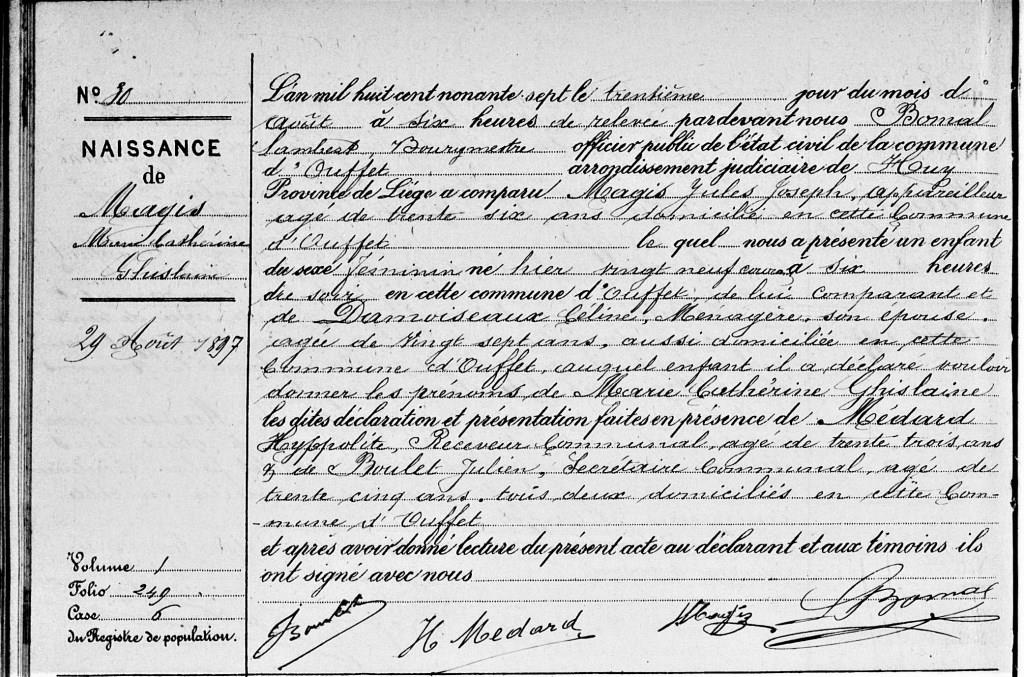 N° 30
NAISSANCE
de
Magis
Marie Cathérine
Ghislaine
29 Août 1897
Volume 1
Folio 249
Case 6
du Registre de population.
L'an mil huit cent nonante-sept le trentième jour du mois d'
Août à six heures de relevée pardevant nous Bomal
Lambert, Bourgmestre officier public de l'état civil de la commune
d'Ouffet arrondissement judiciaire de Huy
Province de Liége a comparu Magis Jules Joseph, appareilleur
agé de trente six ans domicilié en cette Commune
d'Ouffet le quel nous a présenté un enfant
du sexe féminin né hier vingt neuf courant à six heures
du soir, en cette commune d'Ouffet, de lui comparant et
de Damoiseaux Céline, Ménagère, son épouse,
agée de vingt sept ans, aussi domiciliée en cette
Commune d'Ouffet, auquel enfant il a déclaré vouloir
donner les prénoms de Marie Cathérine Ghislaine
les dites déclaration et présentation faites en présence de Médard
Hyppolite, Receveur Communal, agé de trente trois ans
& de Boulet Julien, Secrétaire Communal, agé de
trente cinq ans, tous deux domiciliés en cette Com-
-mune d'Ouffet
et après avoir donné lecture du présent acte au déclarant et aux témoins ils
ont signé avec nous
Boulet H Médard J Magis L Bomal